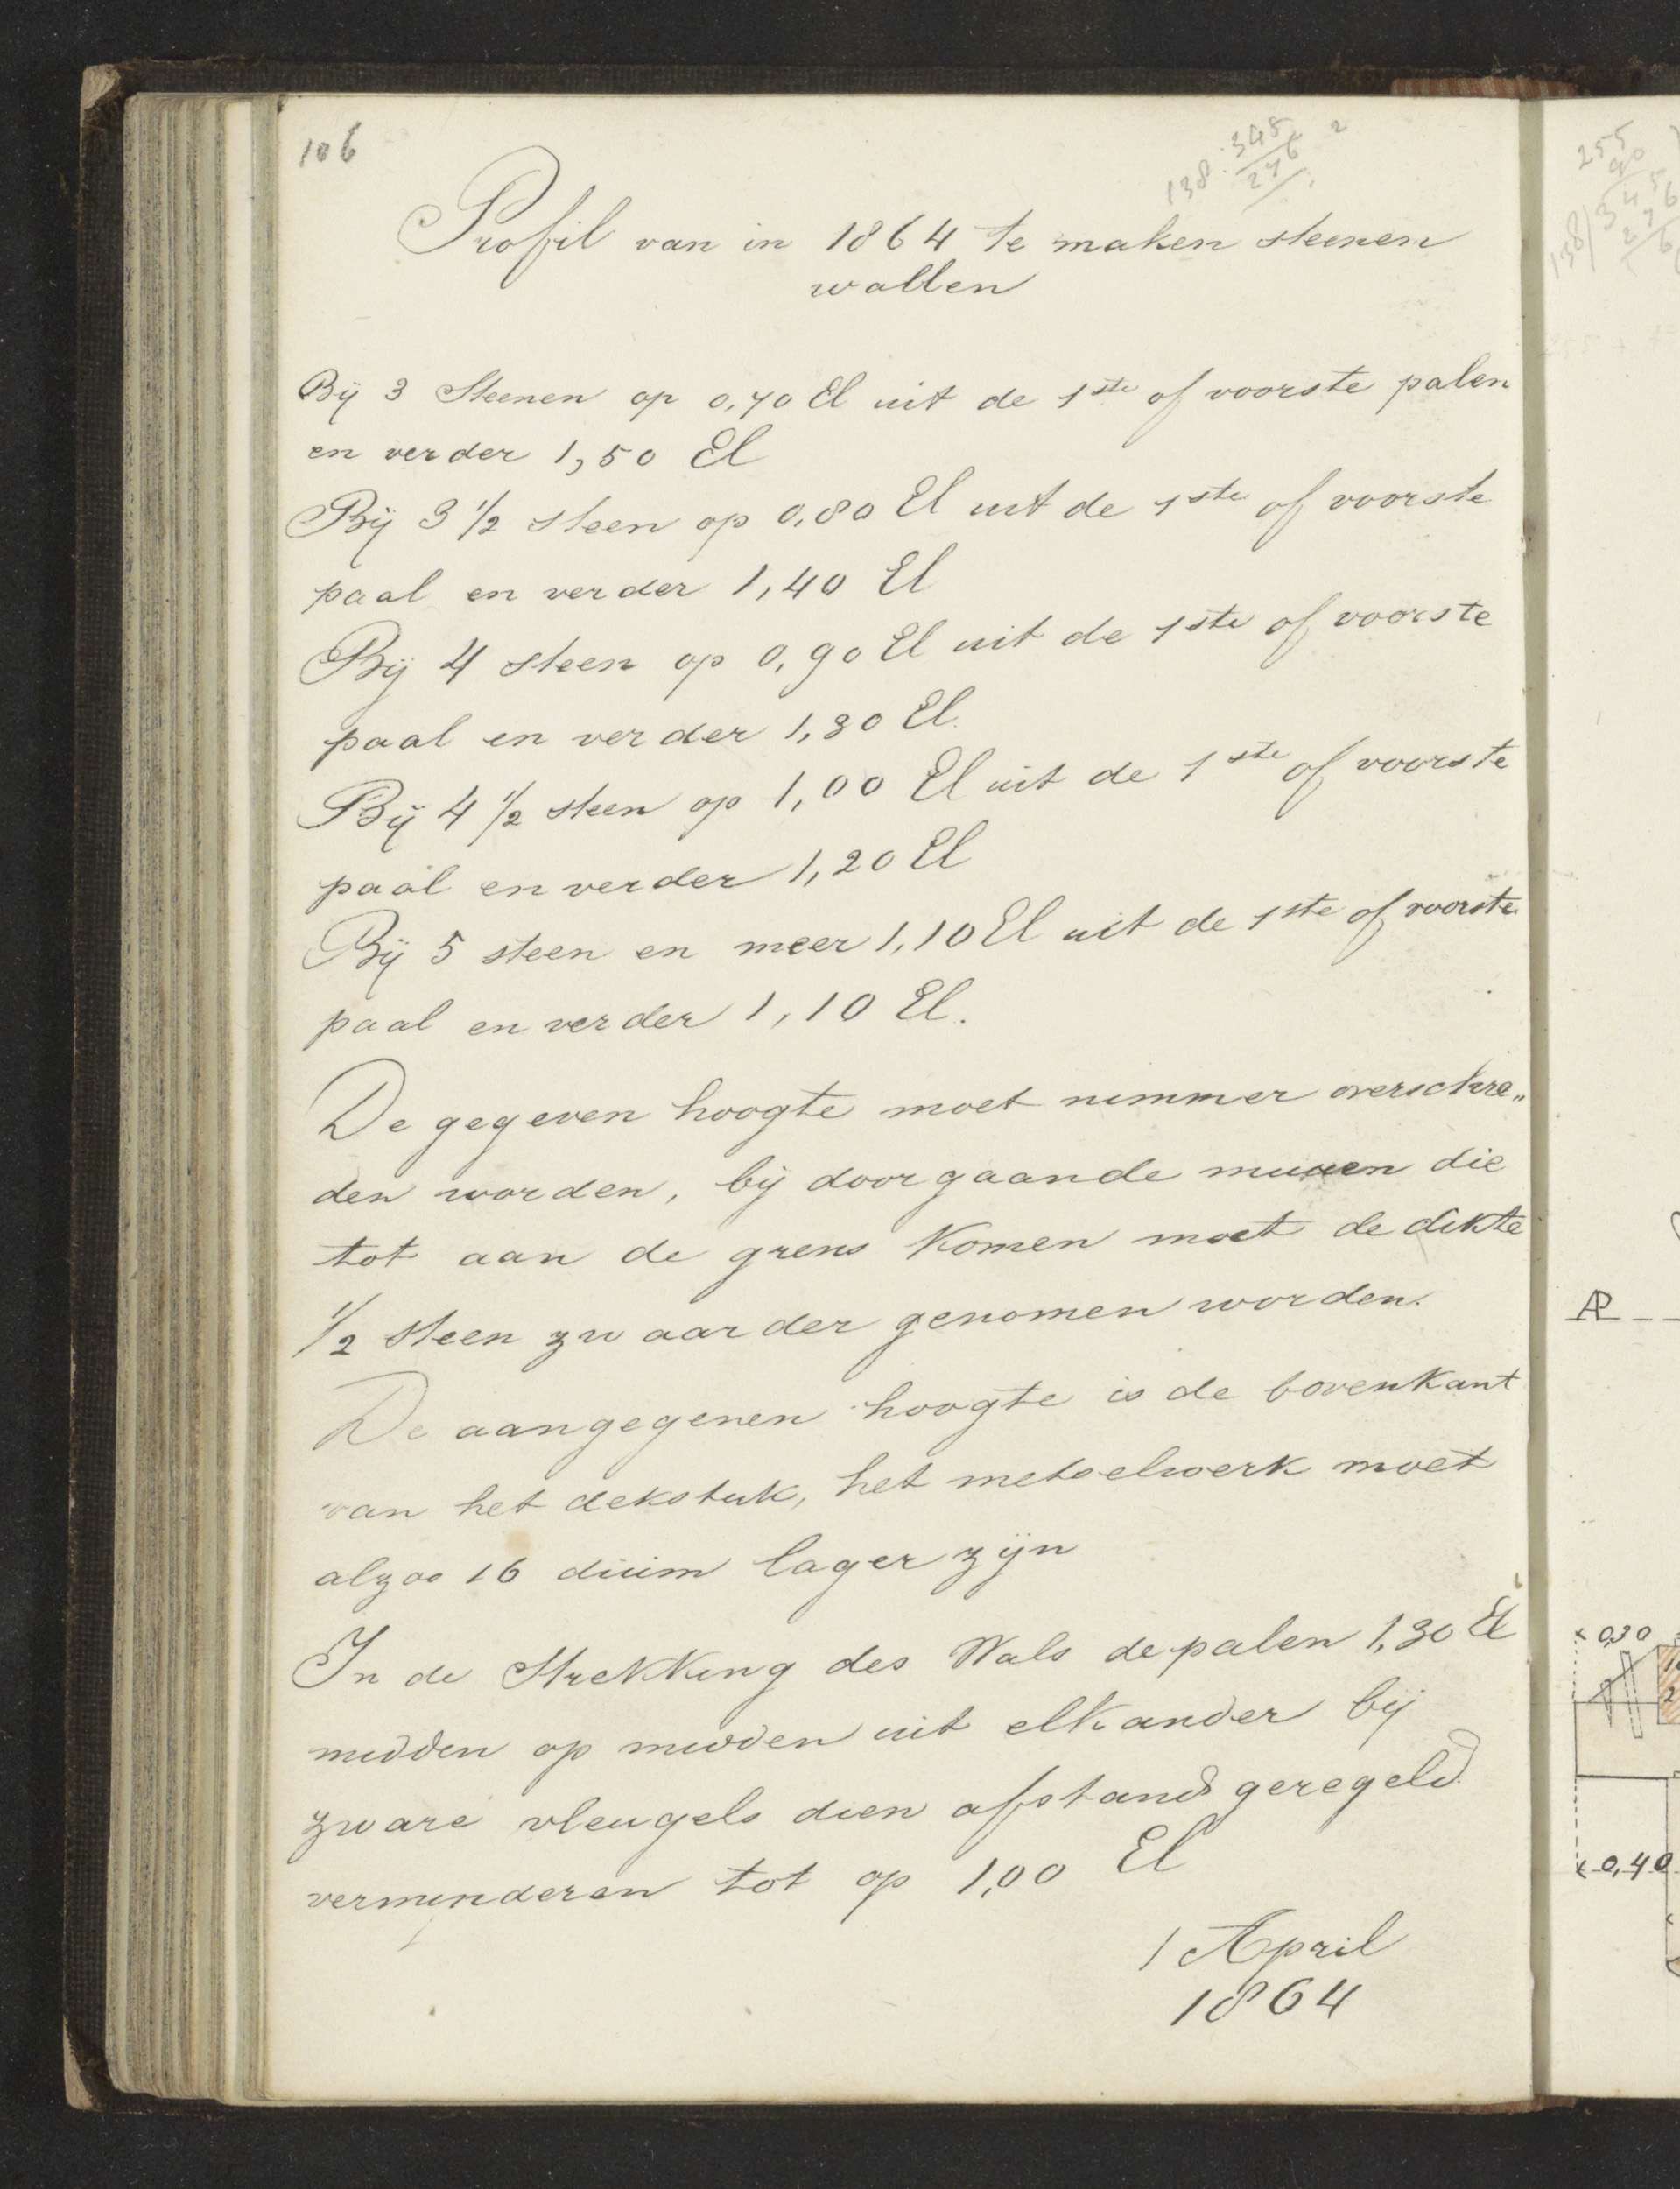 106
138. 345 2
276
Profil van in 1864 te maken steenen
wallen
Bij 3 Steenen op 0,70 El uit de 1ste of voorste palen
en verder 1,50 El
Bij 3 1/2 steen op 0,80 El uit de 1ste of voorste
paal en verder 1,40 El
Bij 4 steen op 0,90 El uit de 1ste of voorste
paal en verder 1,30 El.
Bij 4 1/2 steen op 1,00 El uit de 1ste of voorste
paal en verder 1,20 El
Bij 5 steen en meer 1,10 El uit de 1ste of voorste
paal en verder 1,10 El.
De gegeven hoogte moet nimmer overschre„
den worden, bij doorgaande muuren die
tot aan de grens komen moet de dikte
1/2 steen zwaarder genomen worden.
De aangegeven hoogte is de bovenkant
van het dekstuk, het metselwerk moet
alzoo 16 duim lager zijn
In de Strekking des Wals de palen 1,30 El
midden op midden uit elkander bij
zware vleugels dien afstand geregeld
verminderen tot op 1,00 El
1 April
1864
255
90
138/345
276
6
AP
0,30
0,40